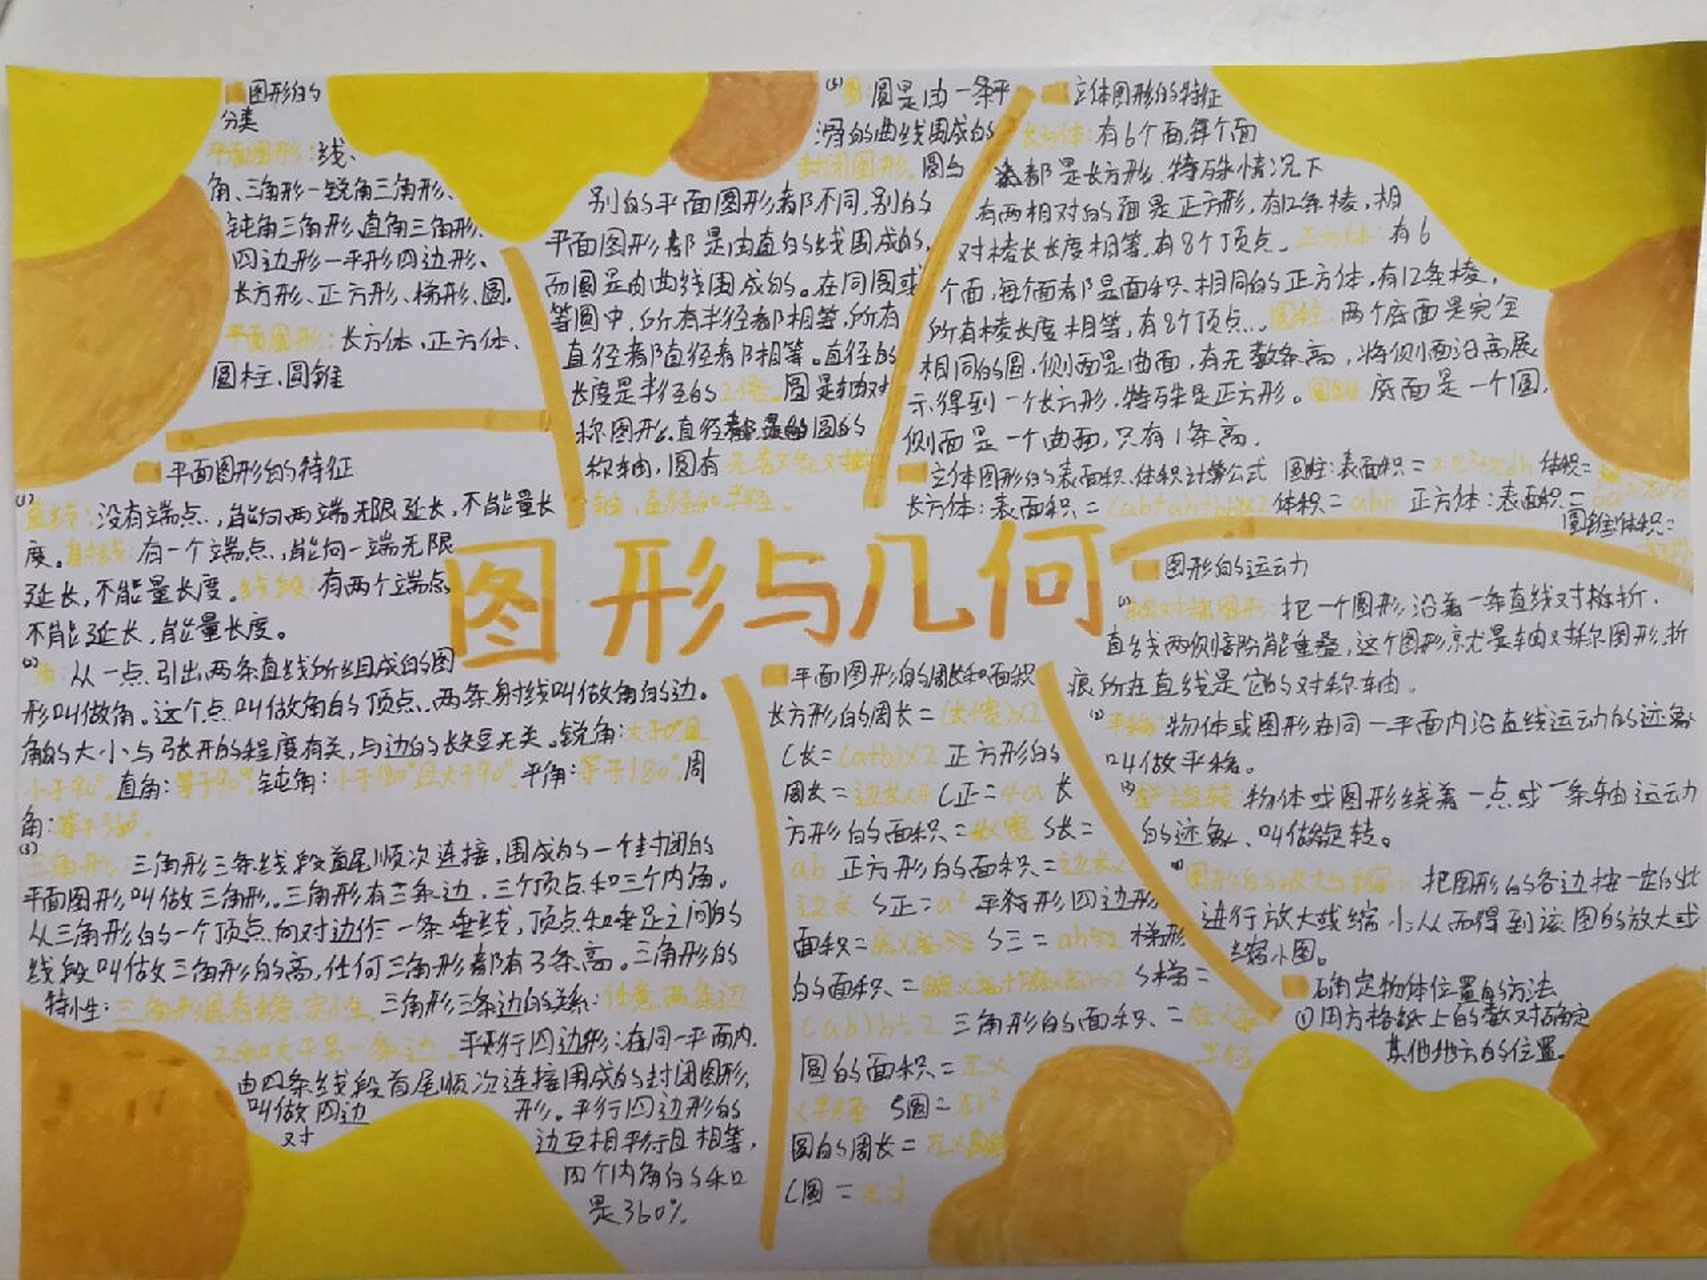 图形的
分类
平面图形:线、
角、三角形—锐角三角形、
钝角三角形、直角三角形、
四边形—平形四边形、
长方形、正方形、梯形、圆,
平面图形:长方体、正方体、
圆柱、圆锥
平面图形的特征
(1)
直线:没有端点,能向两端无限延长,不能量长
度。射线:有一个端点,能向一端无限
延长,不能量长度。线段:有两个端点
不能延长,能量长度。
(2)角 从一点引出两条直线所组成的图
形叫做角。这个点叫做角的顶点,两条射线叫做角的边。
角的大小与张开的程度有关,与边的长短无关。锐角:大于0°且
小于90°,直角:等于90°,钝角:小于180°且大于90°,平角:等于180°,周
角:等于360°
(3)
三角形:三角形三条线段首尾顺次连接,围成的一个封闭的
平面图形叫做三角形。三角形有三条边、三个顶点和三个内角。
从三角形的一个顶点向对边作一条垂线,顶点和垂足之间的
线段叫做三角形的高,任何三角形都有3条高。三角形的
特性:三角形具有稳定性,三角形三条边的关系:任意两条边
之和大于另一条边。平行四边形:在同一平面内,
由四条线段首尾顺次连接围成的封闭图形,
叫做四边形。平行四边形的
对边互相平行且相等,
四个内角的和
是360%
圆 圆是由一条平
滑的曲线围成的
封闭图形,圆与
别的平面图形都不同,别的
平面图形都是由直的线围成的,
而圆是由曲线围成的。在同圆或
等圆中,所有半径都相等,所有
直径都直径都相等。直径的
长度是半径的2倍。圆是轴对
称图形,直径圆的
称轴,圆有无数条对称
轴,直径和半径。
立体图形的特征
长方体:有6个面,每个面
都是长方形,特殊情况下
有两相对的面是正方形,有12条棱,相
对棱长长度相等,有8个顶点。正方体:有6
个面,每个面都是面积相同的正方体,有12条棱,
所有棱长度相等,有8个顶点。圆柱:两个底面是完全
相同的圆,侧面是曲面,有无数条高,将侧面沿高展
示得到一个长方形,特殊是正方形。圆锥 底面是一个圆,
侧面是一个曲面,只有1条高。
立体图形的表面积、体积计算公式 圆柱:表面积= 体积=
长方体:表面积= 体积=abh 正方体:表面积=
圆锥体积=
图形与几何
平面图形的周长和面积
长方形的周长=(长+宽)×2
C长=(a+b)×2 正方形的
周长=边长×4 C正=4a 长
方形的面积=长×宽 S长=
ab 正方形的面积=边长×
边长 S正=a² 平行形四边形
面积=底×高÷2 S三=ah÷2 梯形
的面积= S梯=
(ab)h÷2 三角形的面积=底×高
圆的面积=π×
×半径 S圆=πr²
圆的周长=π×直径
C圆=πd
图形的运动
(1)轴对称图形:把一个图形沿着一条直线对折,
直线两侧部分能重叠,这个图形就是轴对称图形,折
痕所在直线是它的对称轴。
(2)平移:物体或图形在同一平面内沿直线运动的迹象
叫做平移。
旋转:物体或图形绕着一点或一条轴运动
的迹象、叫做旋转。
图形的放大与缩小 把图形的各边按一定的比
进行放大或缩小,从而得到该图的放大或
缩小图。
确定物体位置的方法
①用方格纸上的数对确定
其他地方的位置。